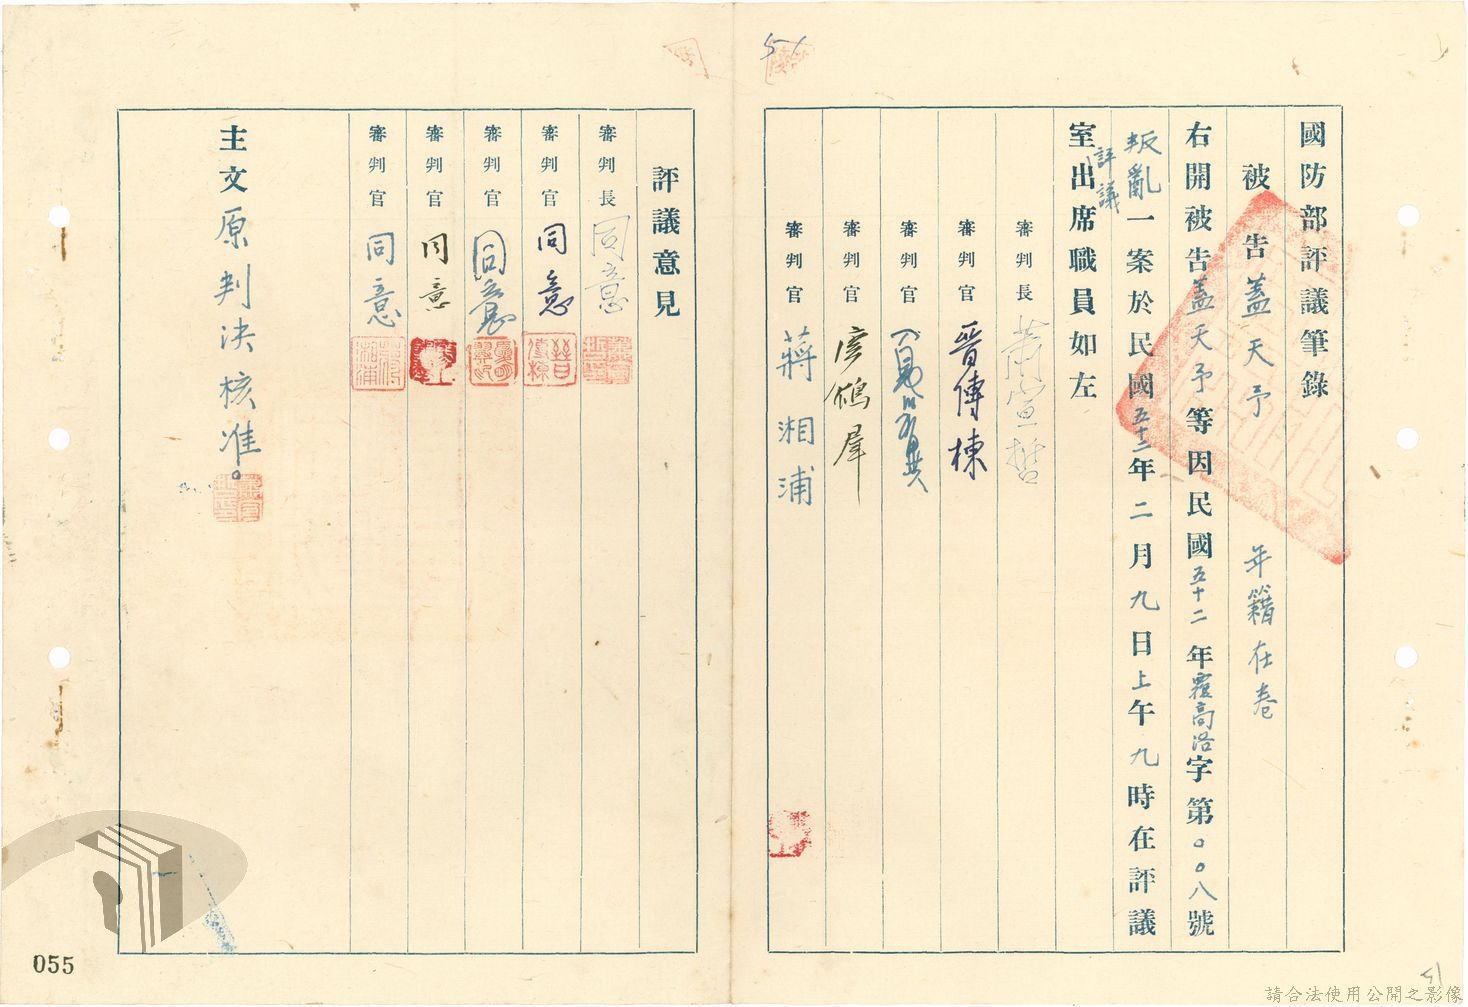 國防部評議筆錄
被告蓋天予 年籍在卷
右開被告蓋天予等因民國五十二年覆高洛字第〇〇八號
叛亂一案於民國五十二年二月九日上午九時在評議
評議
室出席職員如左
審判長
審判官 晉傳棟
審判官
審判官
審判官 蔣湘浦
評議意見
審判長 同意
審判官 同意
審判官 同意
審判官 同意
審判官 同意
主文 原判決核准。
055
51
請合法使用公開之影像